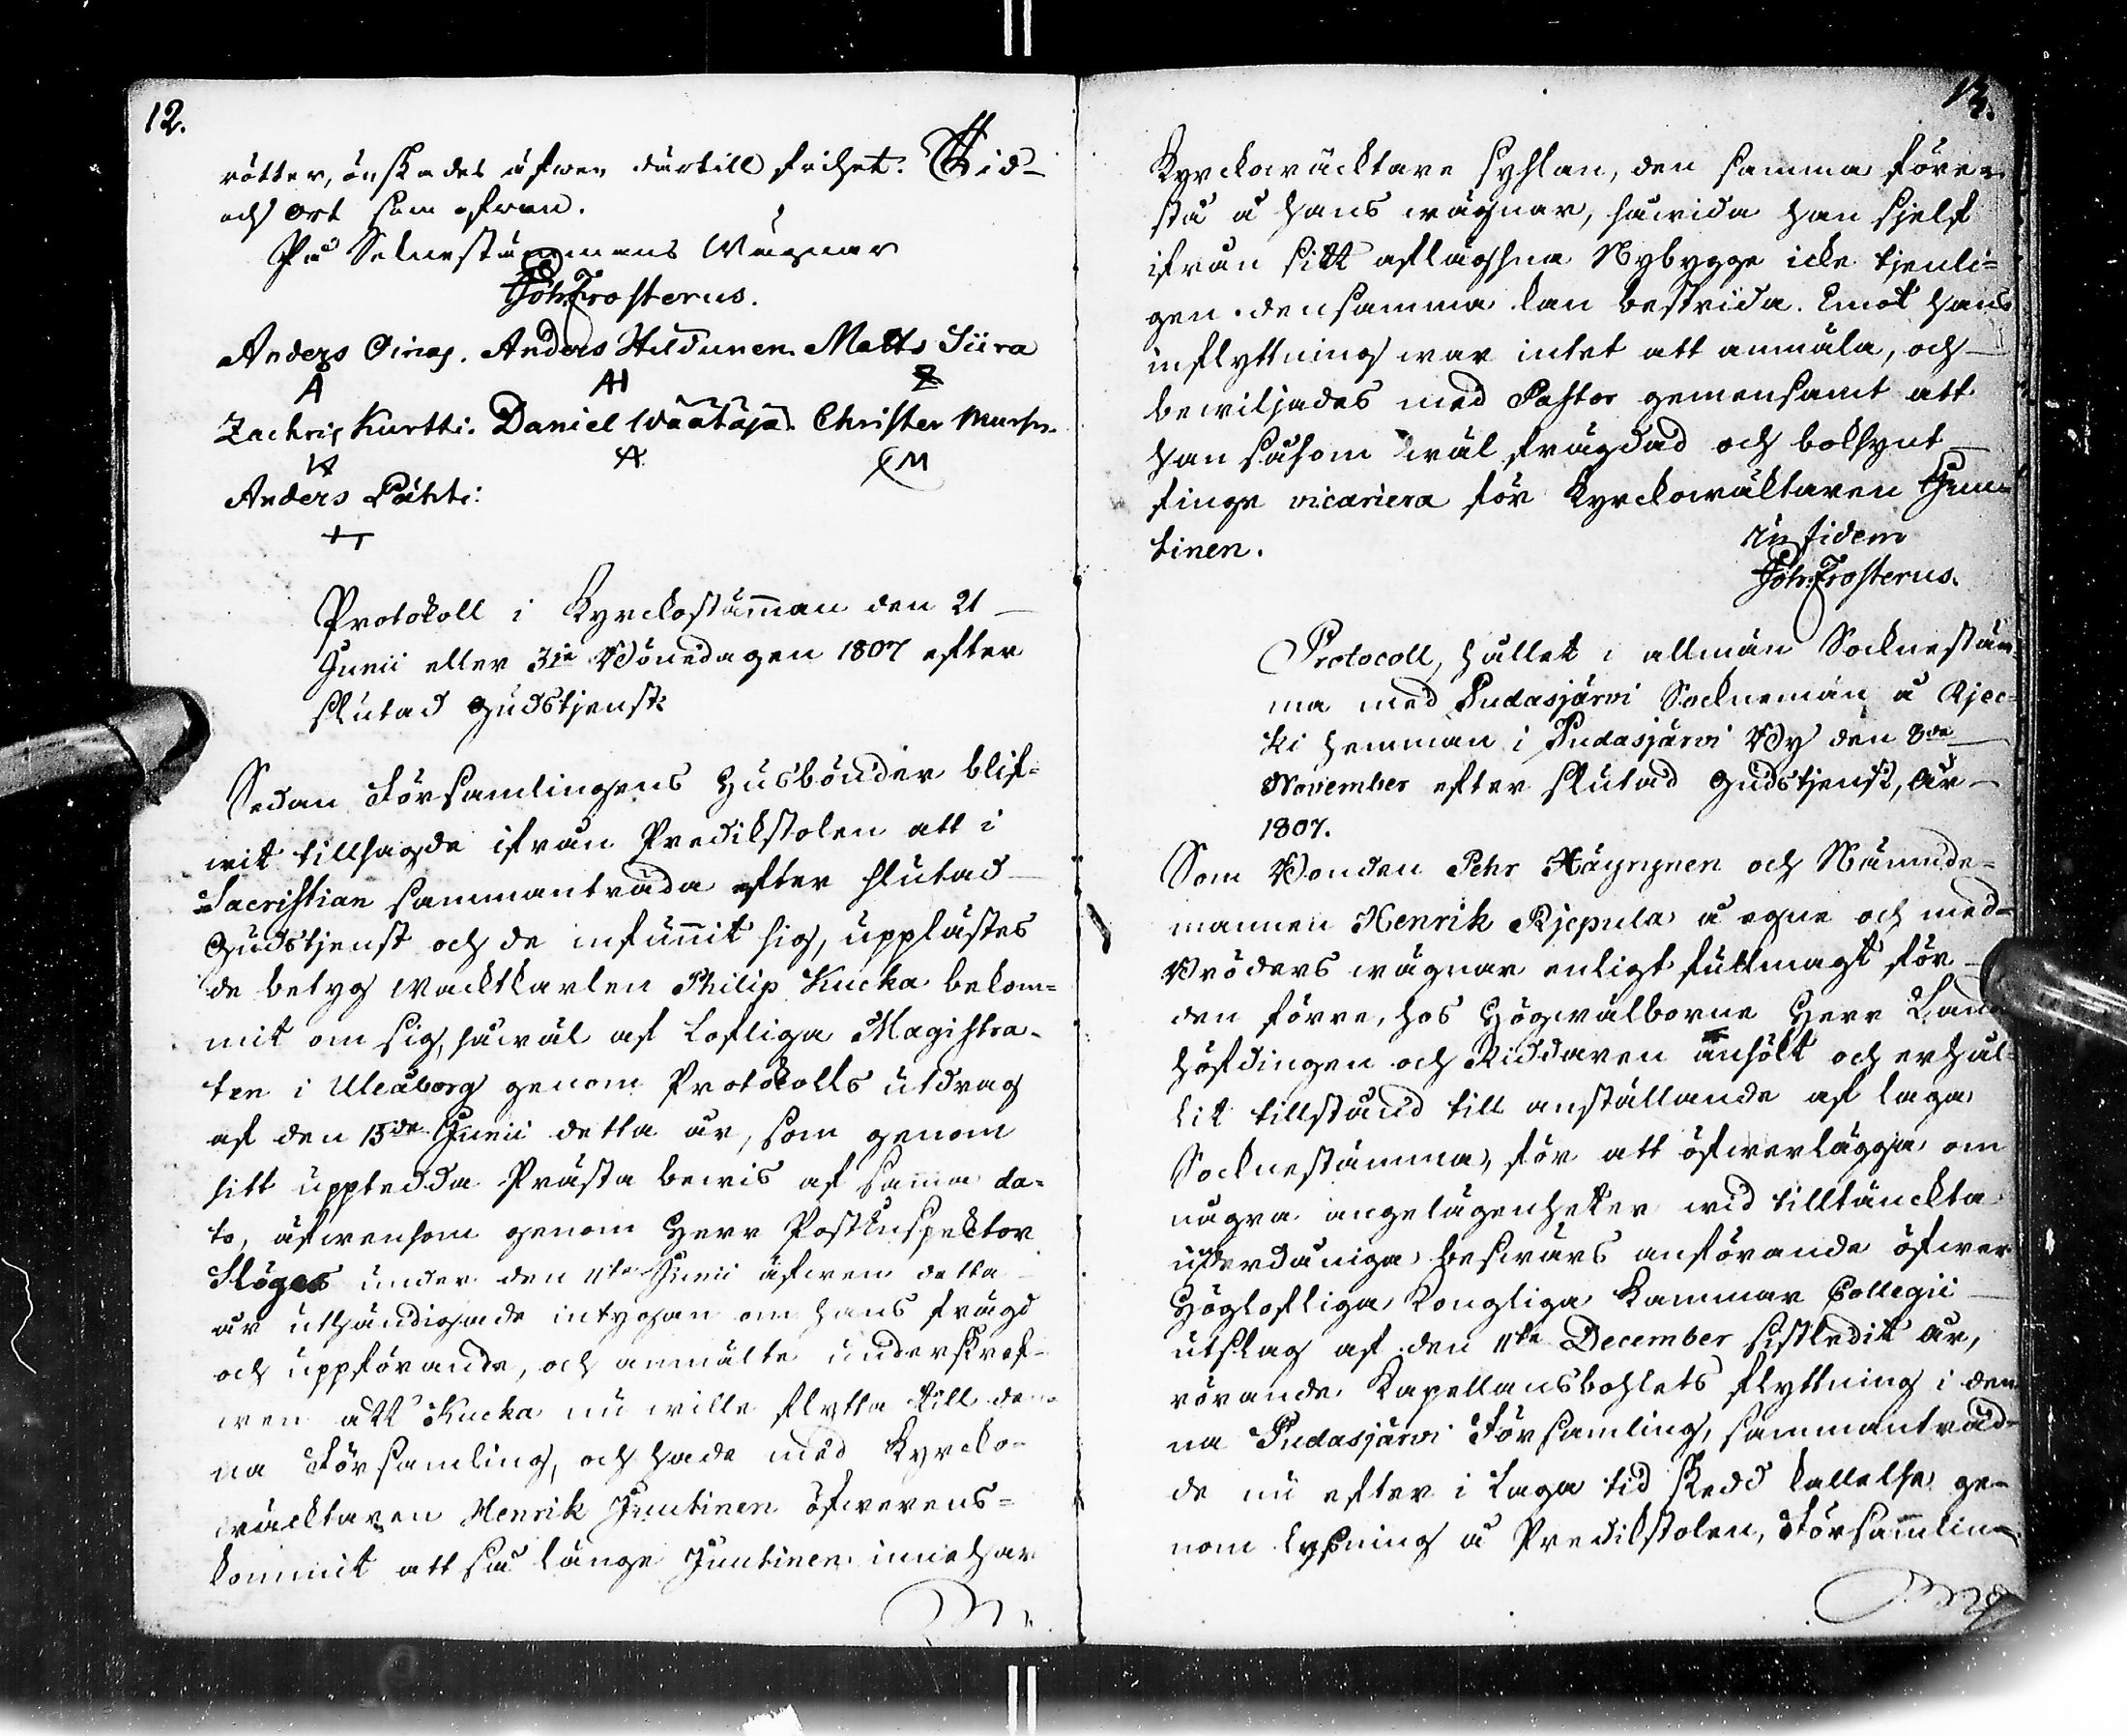 12.
rötter, önskades äfwen dertill frihet. Tid
och Ort som ofwan.
På Sokneståmmans Wägnar
Joh: Frosterus.
Anders Oinas. Anders Hildunen. Matts Siira
A AH
Zachris Kurtti. Daniel Wäätäjä. Christer
Anders Lähti.
Protokoll i Kyrckostämman den 21
Junii eller 3die Bönedagen 1807 efter
slutad Gudstjenst.
Sedan Församlingens Husbönder blif-
wit tillsagde ifrån Predikstolen att i
Sacristian sammanträda efter slutad
Gudstjenst och de infunnit sig, upplästes
de betyg wacktkarlen Philip Kucka bekom-
mit om sig, såwäl af Lofliga Magistra-
ten i Uleåborg genom Protokolls utdrag
af den 15de Junii detta år, som genom
sitt uppteedda Prästa bewis af samma da-
to, äfwensom genom Herr PostInspektor
under den 11te Junii äfwen detta
år uthändigade intygan om hans frägd
och uppförande, och anmälte underskref-
wen att Kucka nu wille flytta till den-
na Församling, och hade med Kyrcko-
wäcktaren Henrik Juntinen öfwerens-
kommit att så länge Juntinen innehar
13.
Kyrckowäcktare syslan, den samma före-
stå å hans wägnar, såwida han sjelf
ifrån sitt aflägsna Nybygge icke tjenli-
gen densamma kan bestrida. Emot hans
inflyttning war intet att anmäla, och
bewiljades med Pastor gemensamt att
han såsom wäl frägdad och boksynt
finge vicariera för Kyrckowäktaren Jun-
tinen.
In fidem
Joh: Frosterus.
Protocoll, hållet i allmän Socknestäm-
ma med Pudasjärwi Socknemän å Rjec-
ki hemman i Pudasjärwi By den 8de
November efter slutad Gudstjenst, År
1807.
Som Bonden Pehr Häyrynen och Nämnde-
mannen Henrik Rjepula å egne och med-
Bröders wägnar enligt fullmagt för
den förre, hos Högwälborne Herr Lands
Höfdingen och Riddaren anhölt och erhål-
lit tillstånd till anställande af laga
Socknestämma, för att öfwerlägga om
några angelägenheter wid tilltänckta
underdåniga beswärs anförande öfwer
Höglofliga Kongliga Kammar Collegii
utslag af den 11te December sistledit år,
rörande Kapellansbohlets flyttning i den-
na Pudasjärwi Församling, sammanträd-
de nu efter i laga tid skedd kallelse ge-
nom lysning å Predikstolen, Församlin-